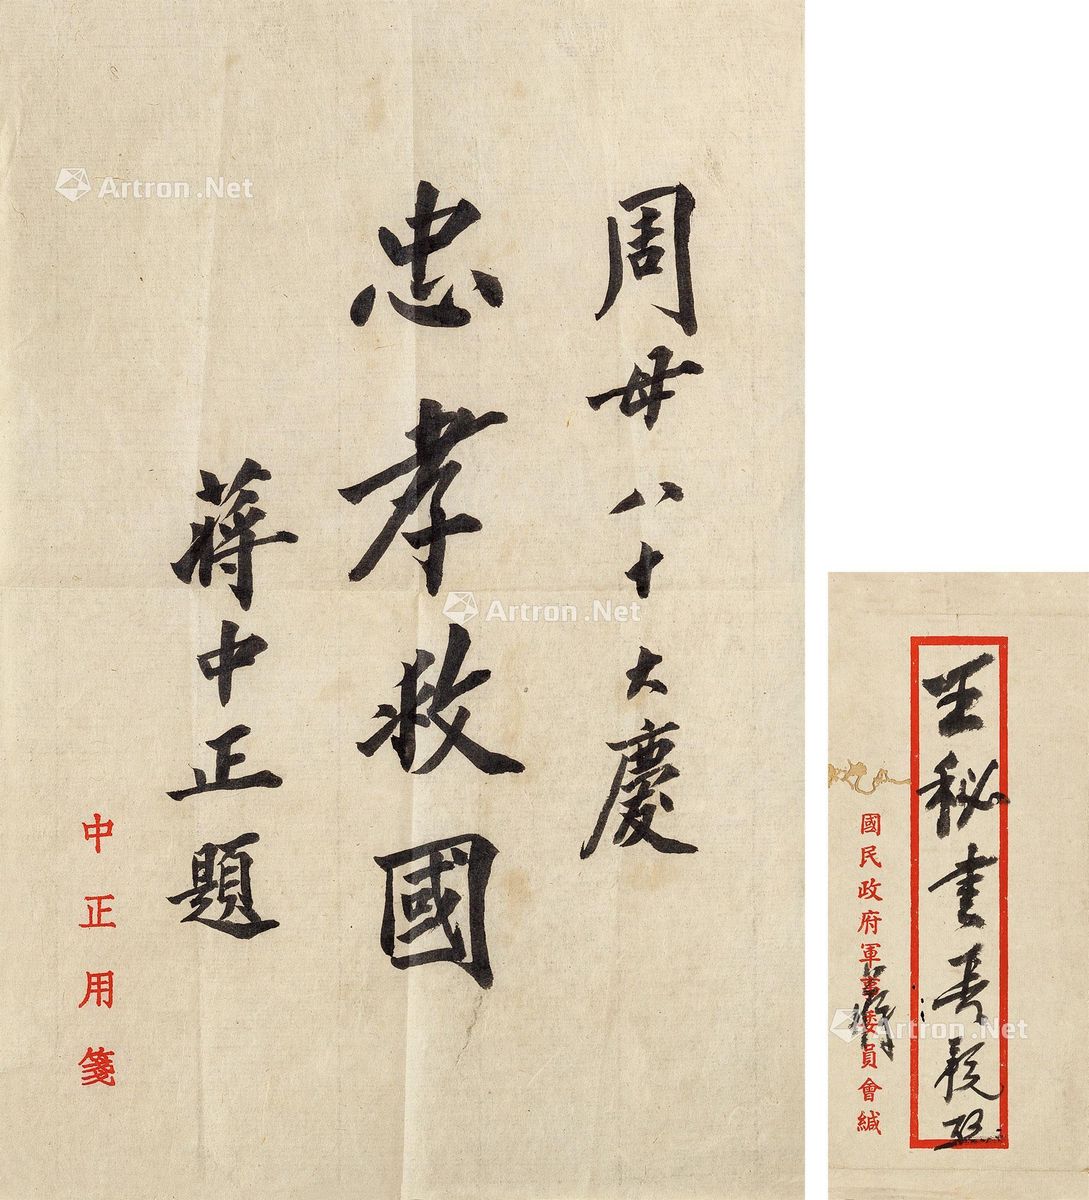 周母八十大慶
忠孝救國
蔣中正題
中正用箋
王秘書
國民政府軍事委員會緘
Artron.Net
Artron.Net
Artron.Net